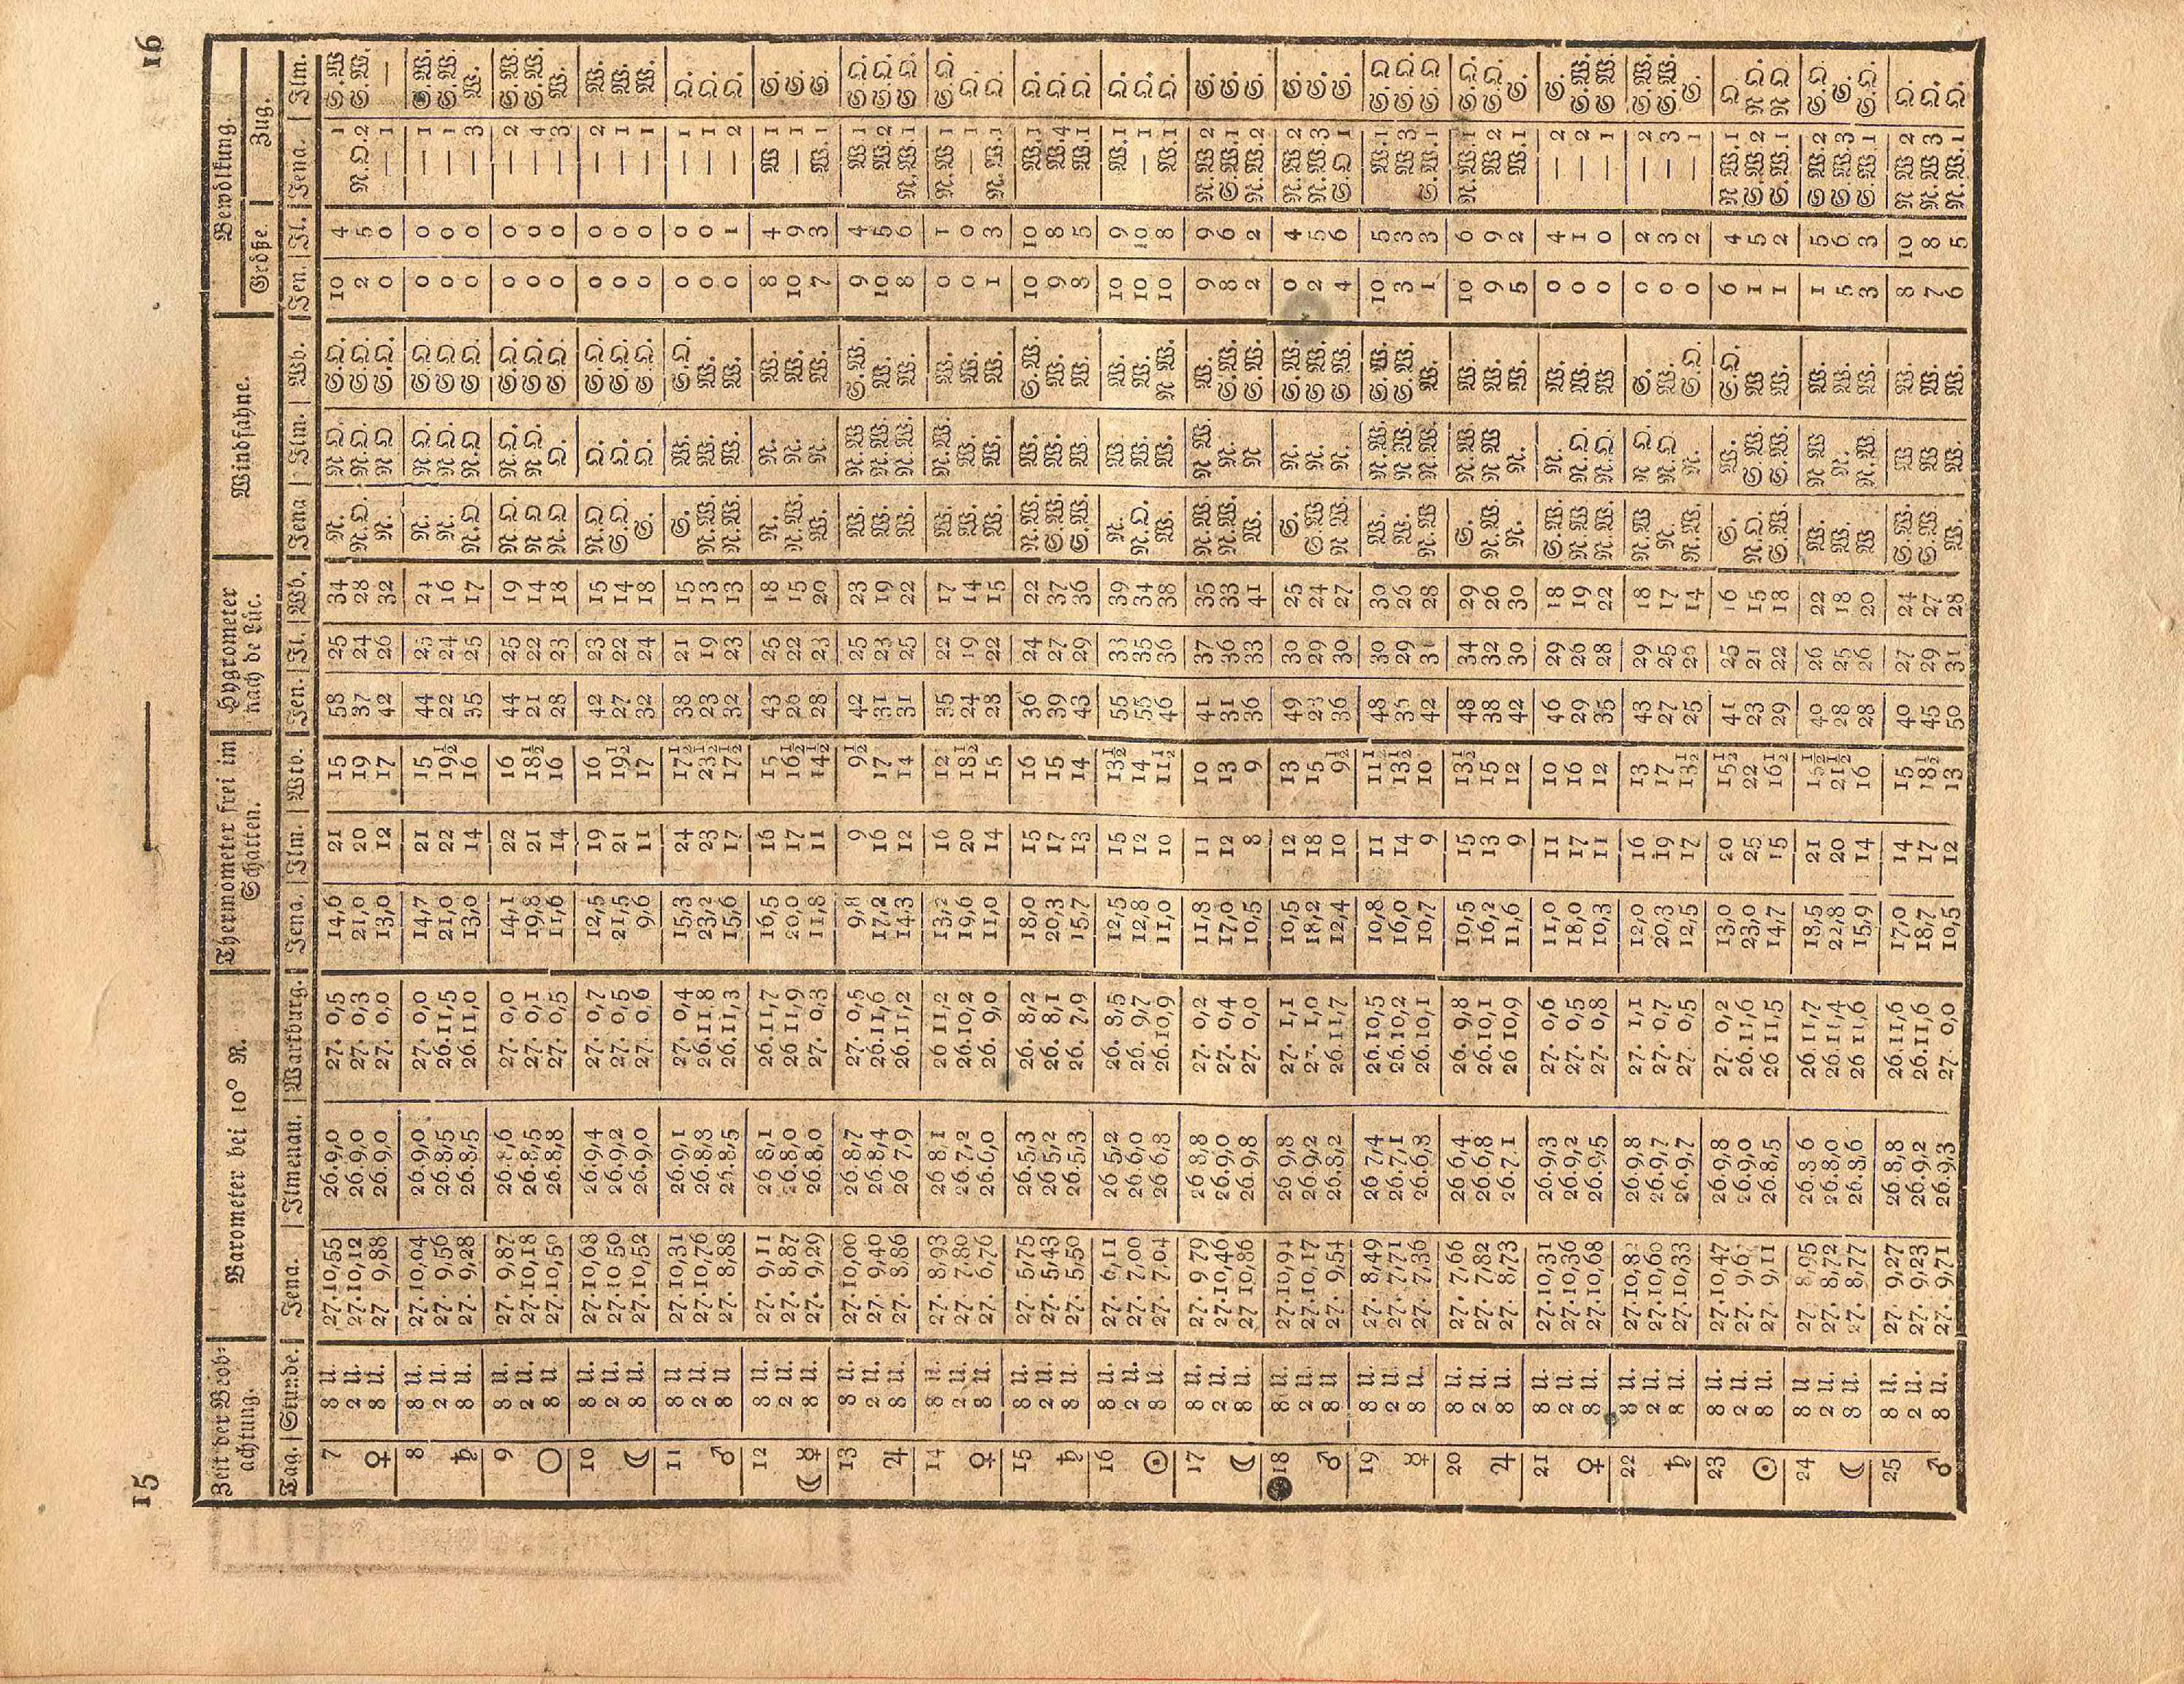 15 16
Zeit der Beob- Barometer bei 10° R. Thermometer frei im Hygrometer Windfahne. Bewölkung.
achtung. Schatten. nach de Lüc. Größe. Zug.
Tag. Stunde. Jena. Ilmenau. Wartburg. Jena. Ilm. Wtb. Jen. Il. Wb. Jena Ilm. Wb. Jen. Il. Jena. Ilm.
7 8 U. 27.10,55 26.9,0 27. 0,5 14,6 21 15 58 25 34 N. N O. S.O. 10 4 — 1 S.W
2 U. 27.10,12 26.9,0 27. 0,3 21,0 20 19 37 24 28 N.O. N.O. S.O. 2 5 N.O.2 S.W.
♀ 8 U. 27 9,88 26.9,0 27. 0,0 13,0 12 17 42 26 32 N. N O S.O. 0 0 — 1 —
8 8 U. 27.10,04 26.9,0 27. 0,0 14,7 21 15 44 25 21 N. N O. S.O. 0 0 — 1 S.W.
2 U. 27. 9,56 26.8,5 26.11,5 21,0 22 19½ 22 24 16 N. N.O. S O. 0 0 — 1 S.W.
♄ 8 U. 27. 9,28 26.8,5 26.11,0 13,0 14 16 35 25 17 N.O N.O S O. 0 0 — 3 W.
9 8 U. 27. 9,87 26.8,6 27. 0,0 14,1 22 16 44 25 19 N O N.O. S.O. 0 0 — 2 S.W.
2 U. 27.10,18 26.8,5 27. 0,1 19,8 21 18½ 21 22 14 N O N O. S.O. 0 0 — 4 S.W.
☉ 8 U 27.10,50 26.8,8 27. 0,5 11,6 14 16 28 23 18 N.O O. S O. 0 0 — 3 W.
10 8 U. 27.10,68 26.9,4 27. 0,7 12,5 19 16 42 23 15 N.O O. S.O. 0 0 — 2 W.
2 U. 27.10 50 26.9,2 27. 0,5 21,5 21 19½ 27 22 14 S O. O. S.O. 0 0 — 1 W.
☾ 8 U. 27.10,52 26.9,0 27. 0,6 9,6 11 17 32 24 18 S. O. S.O. 0 0 — 1 W.
11 8 U 27.10,31 26.9,1 27. 0,4 15,3 24 17½ 38 21 15 S. W. S.O. 0 0 — 1 O.
2 U. 27.10,76 26.8,8 26.11,8 23,2 23 23½ 23 19 13 N.W. W. W. 0 0 — 1 O.
♂ 8 U 27. 8,88 26.8,5 26.11,3 15,6 17 17½ 32 23 13 N.W. W. W. 0 1 — 2 O.
12 8 U. 27. 9,11 26 8,1 26.11,7 16,5 16 15 43 25 18 N. N. W. 8 4 W 1 S.
2 U. 27. 8,87 26.8,0 26 11,9 20,0 17 16½ 26 22 15 N.W. N. W. 10 9 — 1 S.
☾ ☿ 8 U. 27. 9,29 26.8,0 27. 0,3 11,8 11 14½ 28 23 20 W. N. W. 7 3 W. 1 S.
13 8 U. 27.10,00 26.8,7 27. 0,5 9,8 9 9½ 42 25 23 W. N.W S.W. 9 4 W 1 S O.
2 U. 27. 9,40 26.8,4 26.11,6 17,2 16 17 31 23 19 W. N.W. W. 10 5 W.2 S.O.
♃ 8 U. 27. 8,86 26 7,9 26.11,2 14,3 12 14 31 25 22 W. N.W. W. 8 6 N.W.1 S O
14 8 U. 27. 8,93 26 8,1 26 11,2 13,2 16 12 35 22 17 W. N.W. W. 0 1 N.W 1 S.O
2 U. 27. 7,80 26.7,2 26.10,2 19,6 20 18½ 24 19 14 W. W. W. 0 0 — 1 O.
♀ 8 U. 27. 6,76 26.6,0 26. 9,0 11,0 14 15 28 22 15 W. W. W. 1 3 N.W.1 O.
15 8 U. 27. 5,75 26.5,3 26. 8,2 18,0 15 16 36 24 22 N.W. W. S.W. 10 10 W.1 O.
2 U. 27. 5,43 26 5,2 26. 8,1 20,3 17 15 39 27 37 S W. W. W. 9 8 W.4 O.
♄ 8 U. 27. 5,50 26.5,3 26. 7,9 15,7 13 14 43 29 36 S.W. W. W. 8 5 W.1 O.
16 8 U. 27. 6,11 26 5,2 26. 8,5 12,5 15 13½ 55 33 39 N. W. W. 10 9 W.1 O.
2 U. 27. 7,00 26 6,0 26. 9,7 12,8 12 14 55 35 34 N.O. W. W. 10 10 — 1 O.
☉ 8 U. 27. 7,04 26 6,8 26.10,9 11,0 10 11½ 46 36 38 W. W. N W. 10 8 W.1 O.
17 8 U. 27. 9,79 26 8,8 27. 0,2 11,8 11 10 41 37 35 N.W. N W. W. 9 9 N.W 2 S.
2 U. 27.10,46 26.9,0 27. 0,4 17,0 12 13 31 36 33 N.W. N. S.W. 8 6 S.W.1 S.
☾ 8 U. 27 10,86 26.9,8 27. 0,0 10,5 8 9 36 33 41 W. N S W. 2 2 N W.2 S.
18 8 U. 27.10,94 26 9,8 27. 1,1 10,5 12 13 49 30 25 S. N. S.W. 0 4 N.W 2 S.
2 U 27.10,17 26.9,2 27. 1,0 18,2 18 15 23 29 24 S.W N. S W. 2 5 N.W.3 S.
♂ 8 U 27. 9,54 26.8,2 26.11,7 12,4 10 9½ 36 30 27 N W N. S W. 4 6 S.O 1 S.
19 8 U. 27. 8,49 26 7,4 26.10,5 10,8 11 11½ 48 30 30 W. N.W. S.W. 10 5 W.1 S.O
2 U. 27. 7,71 26.7,1 26.10,2 16,0 14 13½ 35 29 26 W. N W. S.W. 3 3 W 3 S O
☿ 8 U. 27. 7,36 26.6,8 26.10,1 10,7 9 10 42 28 N.W N.W W. 1 3 S.W.1 S O
20 8 U. 27. 7,66 26 6,4 26. 9,8 10,5 15 13½ 48 34 29 S. N.W. W. 10 6 N.W.1 S.O.
2 U. 27. 7,82 26.6,8 26.10,1 16,2 13 15 38 32 26 N.W N W W. 9 9 W 2 S O.
♃ 8 U. 27. 8,73 26.7,1 26 10,9 11,6 9 12 42 30 30 N. N. W. 5 2 W.1 S.
21 8 U. 27.10,31 26.9,3 27. 0,6 11,0 11 10 46 29 18 S.W. N. W. 0 4 — 2 S.
2 U. 27.10,36 26.9,2 27. 0,5 18,0 17 16 29 26 19 N.W N.O. W. 0 1 — 2 S.W.
♀ 8 U. 27.10,68 26.9,5 27. 0,8 10,3 11 12 35 28 22 N.W. N.O. W 0 0 — 1 S W
22 8 U. 27.10,8 26.9,8 27. 1,1 12,0 16 13 43 29 18 N.W N O S. 0 2 — 2 S.W.
2 U. 27.10,60 26.9,7 27. 0,7 20,3 19 17 27 25 17 N. N.O W. 0 3 — 3 S.W.
♄ 8 U. 27.10,33 26.9,7 27. 0,5 12,5 17 13½ 25 25 14 N.W. N. S.O 0 2 — 1 S.
23 8 U. 27.10,47 26.9,8 27. 0,2 13,0 20 15½ 41 25 16 S. W. S.O. 6 4 N W.1 O.
2 U. 27. 9,6 26.9,0 26.11,6 23,0 25 22 23 21 15 N.O. S.W. W 1 5 S.W 2 N O.
☉ 8 U. 27. 9,11 26.8,5 26 11,5 14,7 15 16½ 29 22 18 S.W. S.W. W. 1 2 S.W.1 N O
24 8 U. 27. 8,95 26.8 6 26.11,7 18,5 21 15½ 40 26 22 W. N W W. 1 5 S W.2 S.O.
2 U. 27. 8,72 26.8,0 26.11,4 22,8 20 21½ 28 25 18 W. N. W. 5 6 S.W.3 S.
☾ 8 U. 27. 8,77 26.8,6 26 11,6 15,9 14 16 28 26 20 W N.W. W. 3 3 S.W 1 S.O.
25 8 U. 27. 9,27 26.8,8 26.11,6 17,0 14 15 40 27 24 S.W. W W. 8 10 N W 2 O.
2 U. 27. 9,23 26.9,2 26.11,6 18,7 17 18½ 45 29 27 S.W. W W. 7 8 N.W 3 O.
♂ 8 U. 27. 9,71 26.9,3 27. 0,0 10,5 12 13 50 31 28 W. W. W. 6 5 N.W.1 O.